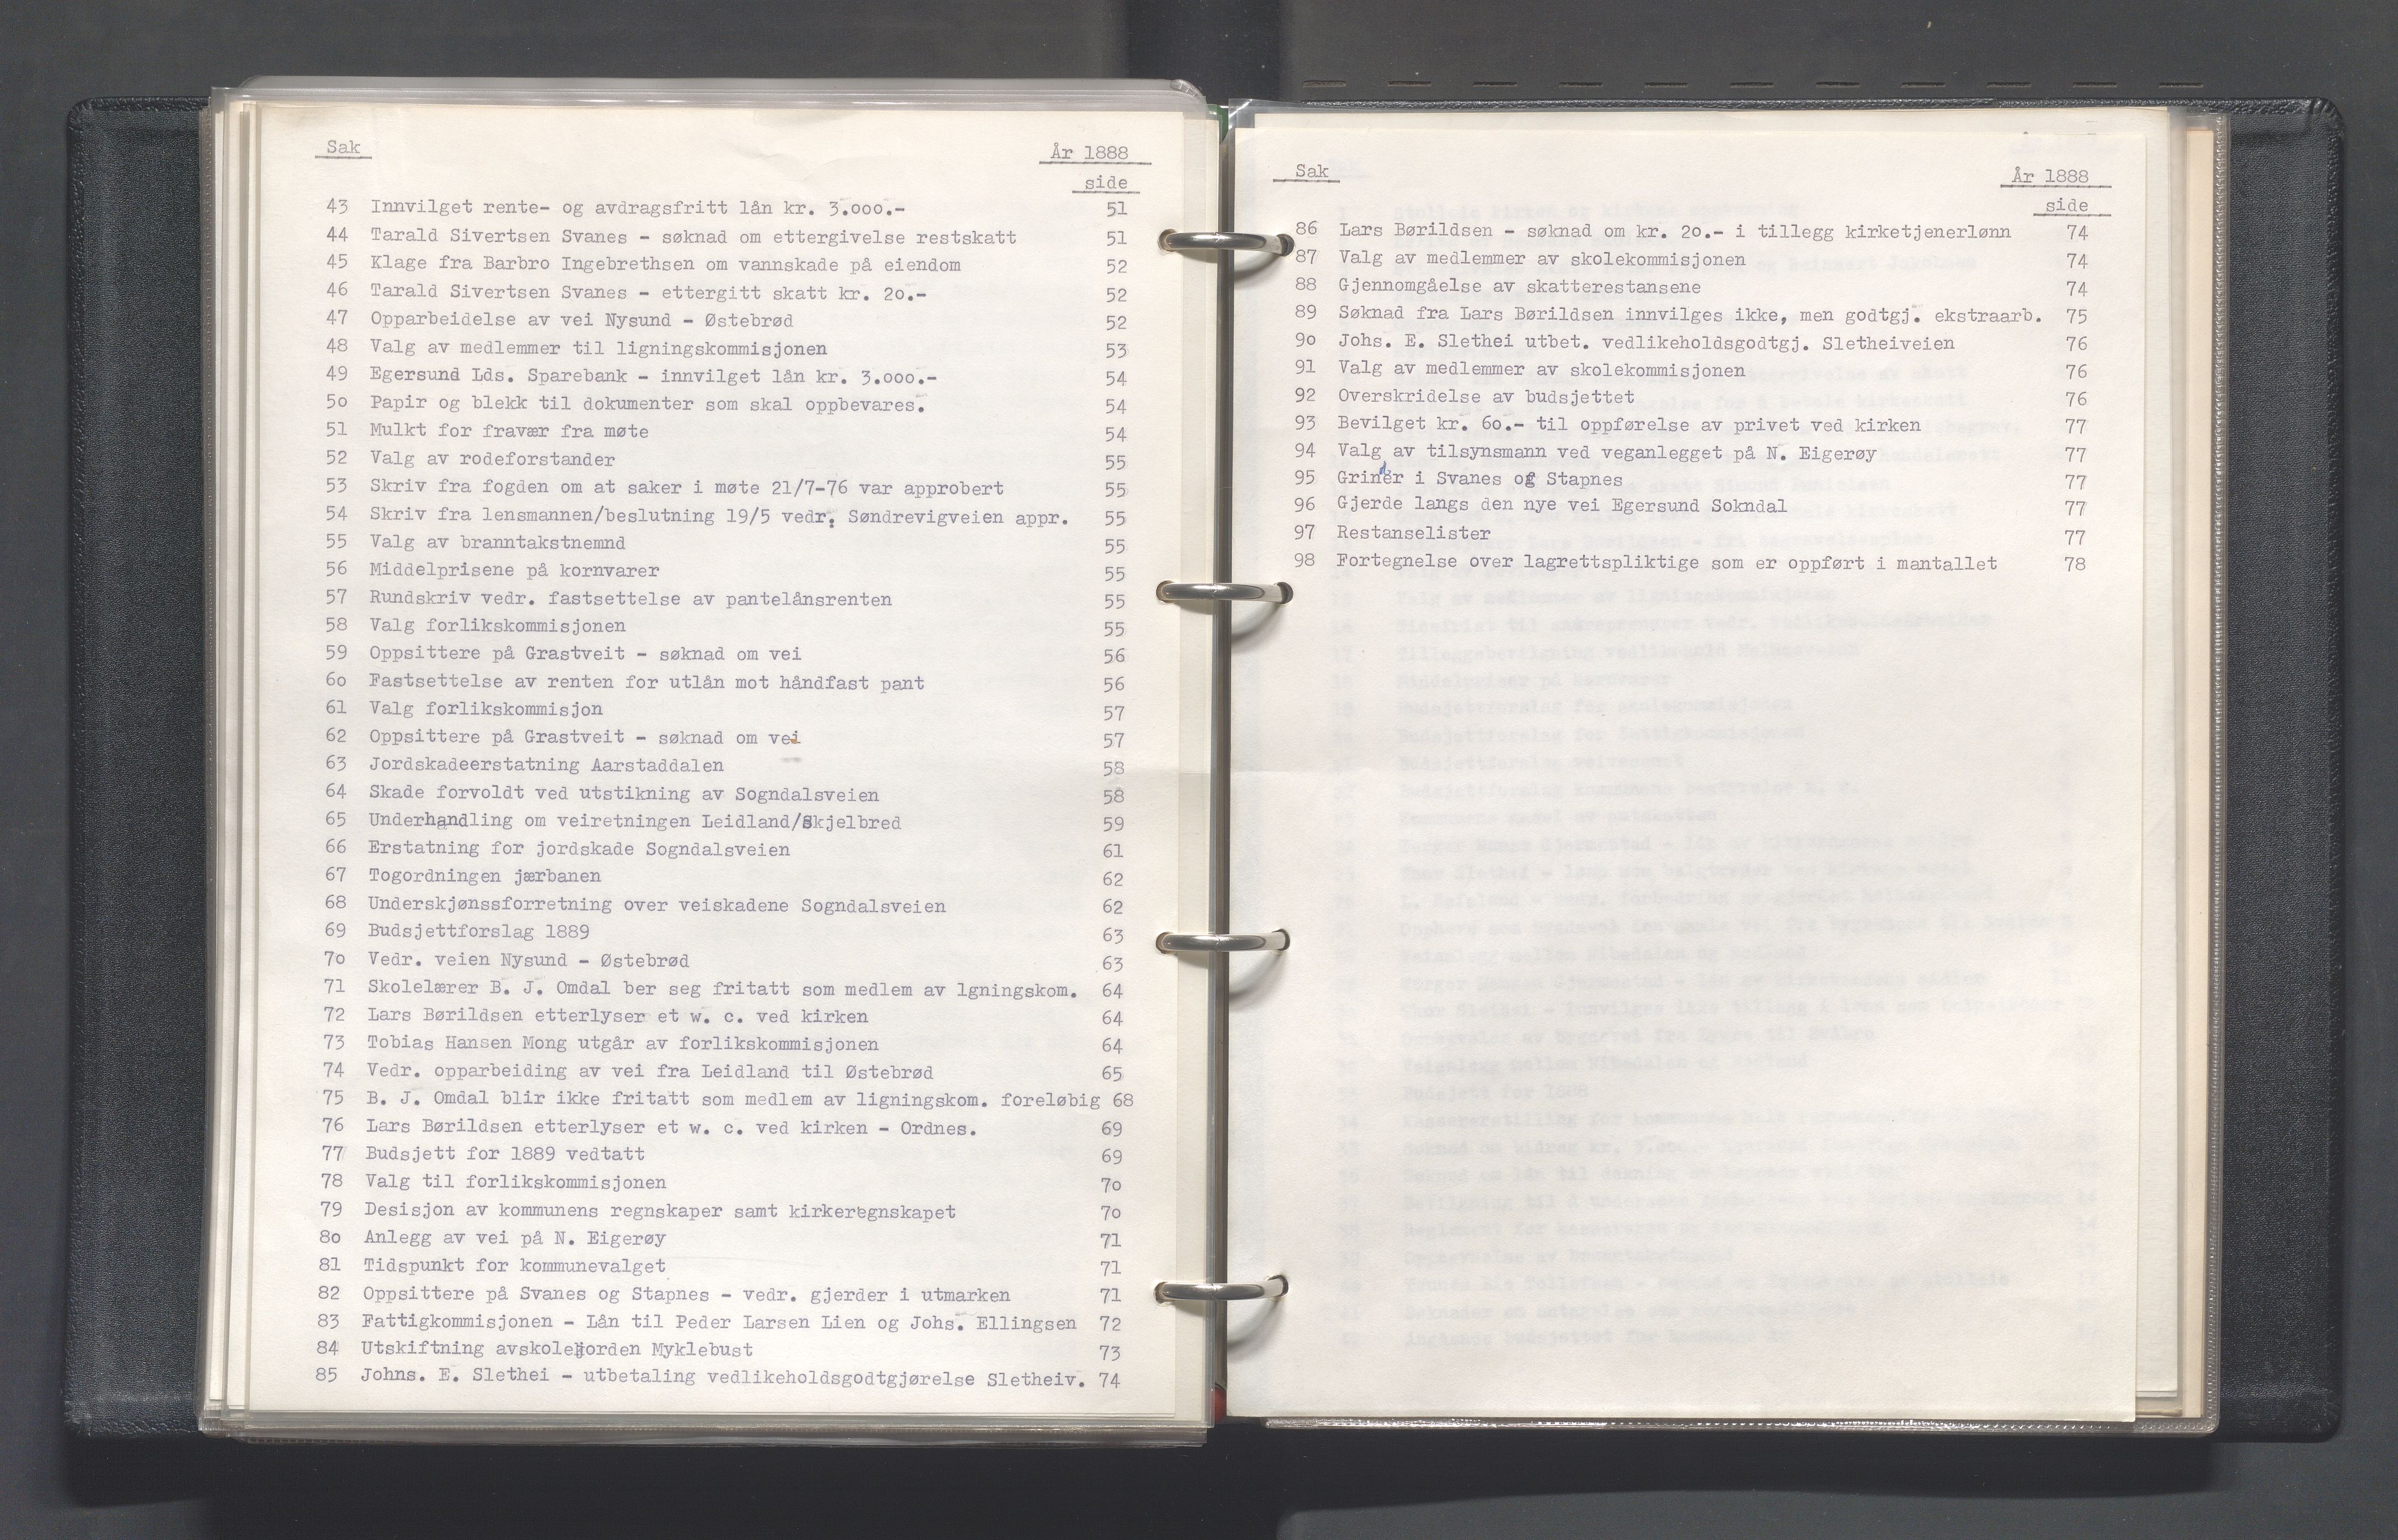 Sak
År 1888
side
43 Innvilget rente- og avdragsfritt lån kr. 3.ooo.- 51
44 Tarald Sivertsen Svanes - søknad om ettergivelse restskatt 51
45 Klage fra Barbro Ingebrethsen om vannskade på eiendom 52
46 Tarald Sivertsen Svanes - ettergitt skatt kr. 2o.- 52
47 Opparbeidelse av vei Nysund - Østebrød 52
48 Valg av medlemmer til ligningskommisjonen 53
49 Egersund Lds. Sparebank - innvilget lån kr. 3.ooo.- 54
5o Papir og blekk til dokumenter som skal oppbevares. 54
51 Mulkt for fravær fra møte 54
52 Valg av rodeforstander 55
53 Skriv fra fogden om at saker i møte 21/7-76 var approbert 55
54 Skriv fra lensmannen/beslutning 19/5 vedr. Søndrevigveien appr. 55
55 Valg av branntakstnemnd 55
56 Middelprisene på kornvarer 55
57 Rundskriv vedr. fastsettelse av pantelånsrenten 55
58 Valg forlikskommisjonen 55
59 Oppsittere på Grastveit - søknad om vei 56
6o Fastsettelse av renten for utlån mot håndfast pant 56
61 Valg forlikskommisjon 57
62 Oppsittere på Grastveit - søknad om vei 57
63 Jordskadeerstatning Aarstaddalen 58
64 Skade forvoldt ved utstikning av Sogndalsveien 58
65 Underhandling om veiretningen Leidland/Skjelbred 59
66 Erstatning for jordskade Sogndalsveien 61
67 Togordningen jærbanen 62
68 Underskjønssforretning over veiskadene Sogndalsveien 62
69 Budsjettforslag 1889 63
7o Vedr. veien Nysund - Østebrød 63
71 Skolelærer B. J. Omdal ber seg fritatt som medlem av lgningskom. 64
72 Lars Børildsen etterlyser et w. c. ved kirken 64
73 Tobias Hansen Mong utgår av forlikskommisjonen 64
74 Vedr. opparbeiding av vei fra Leidland til Østebrød 65
75 B. J. Omdal blir ikke fritatt som medlem av ligningskom. foreløbig 68
76 Lars Børildsen etterlyser et w. c. ved kirken - Ordnes. 69
77 Budsjett for 1889 vedtatt 69
78 Valg til forlikskommisjonen 7o
79 Desisjon av kommunens regnskaper samt kirkeregnskapet 7o
8o Anlegg av vei på N. Eigerøy 71
81 Tidspunkt for kommunevalget 71
82 Oppsittere på Svanes og Stapnes - vedr. gjerder i utmarken 71
83 Fattigkommisjonen - Lån til Peder Larsen Lien og Johs. Ellingsen 72
84 Utskiftning avskolejorden Myklebust 73
85 Johns. E. Slethei - utbetaling vedlikeholdsgodtgjørelse Sletheiv. 74
Sak
År 1888
side
86 Lars Børildsen - søknad om kr. 2o.- i tillegg kirketjenerlønn 74
87 Valg av medlemmer av skolekommisjonen 74
88 Gjennomgåelse av skatterestansene 74
89 Søknad fra Lars Børildsen innvilges ikke, men godtgj. ekstraarb. 75
9o Johs. E. Slethei utbet. vedlikeholdsgodtgj. Sletheiveien 76
91 Valg av medlemmer av skolekommisjonen 76
92 Overskridelse av budsjettet 76
93 Bevilget kr. 6o.- til oppførelse av privet ved kirken 77
94 Valg av tilsynsmann ved veganlegget på N. Eigerøy 77
95 Grinder i Svanes og Stapnes 77
96 Gjerde langs den nye vei Egersund Sokndal 77
97 Restanselister 77
98 Fortegnelse over lagrettspliktige som er oppført i mantallet 78